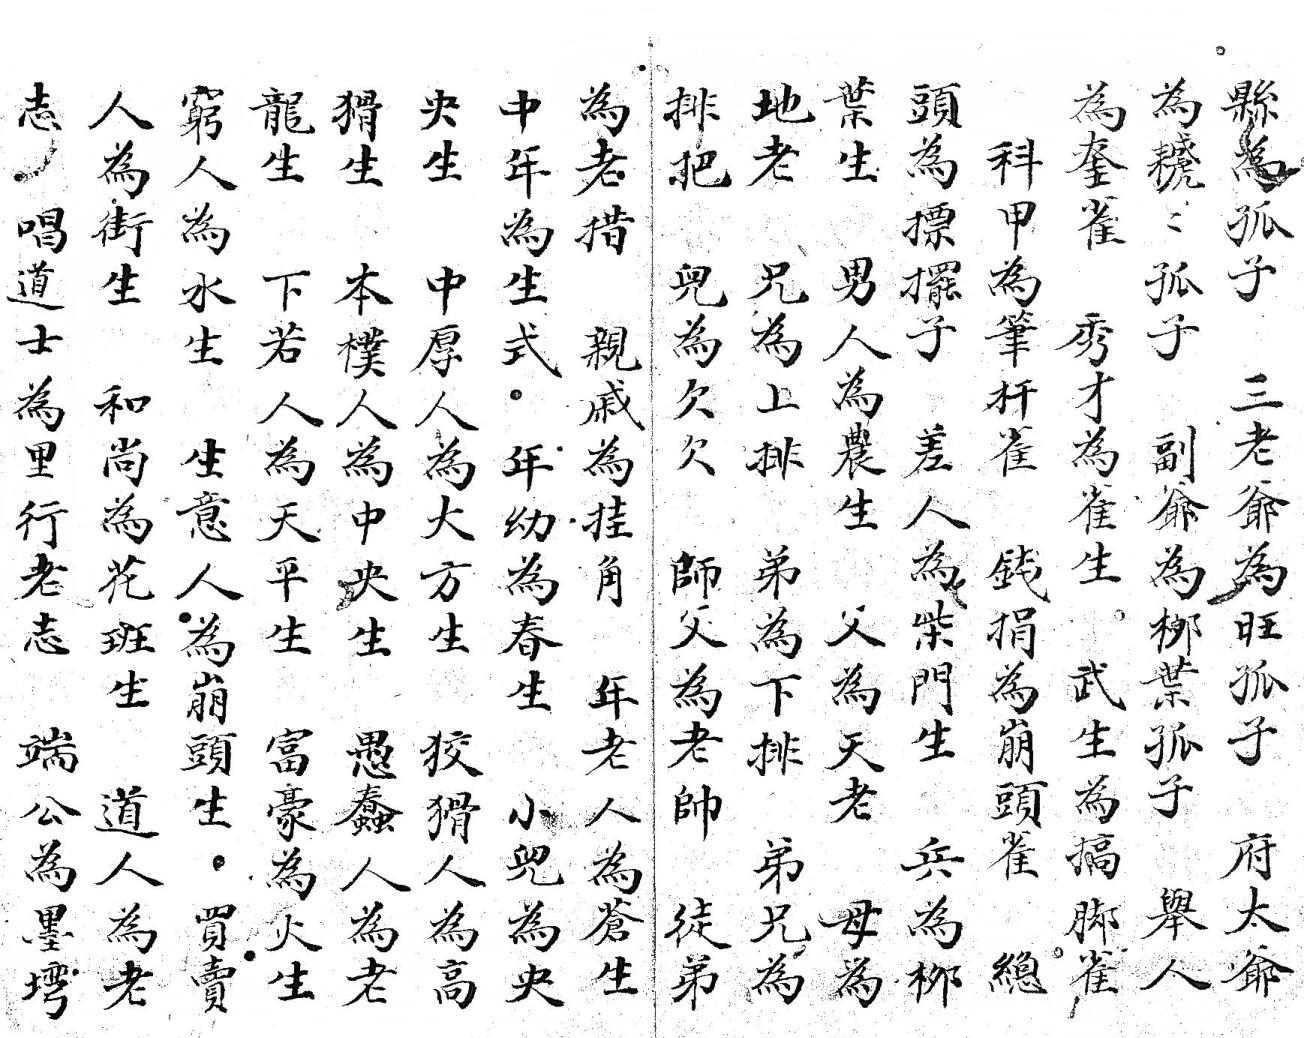 縣為孤子　三老爺為旺孤子　府太爺
為䡾〻孤子　副爺為柳葉孤子　舉人
為奎雀　秀才為雀生　武生為搞脚雀
科甲為筆杆雀　錢捐為崩頭雀　總
頭為摽擺子　差人為柴門生　兵為柳
葉生　男人為農生　父為天老　母為
地老　兄為上排　弟為下排　弟兄為
排把　兒為欠欠　師父為老帥　徒弟
為老措　親戚為挂角　年老人為蒼生
中年為生式　年幼為春生　小兒為央
央生　中厚人為大方生　狡猾人為高
猾生　本樸人為中央生　愚蠢人為老
龍生　下若人為天平生　富豪為火生
窮人為水生　生意人為崩頭生　買賣
人為街生　和尚為花班生　道人為老
志　唱道士為里行老志　端公為墨塆